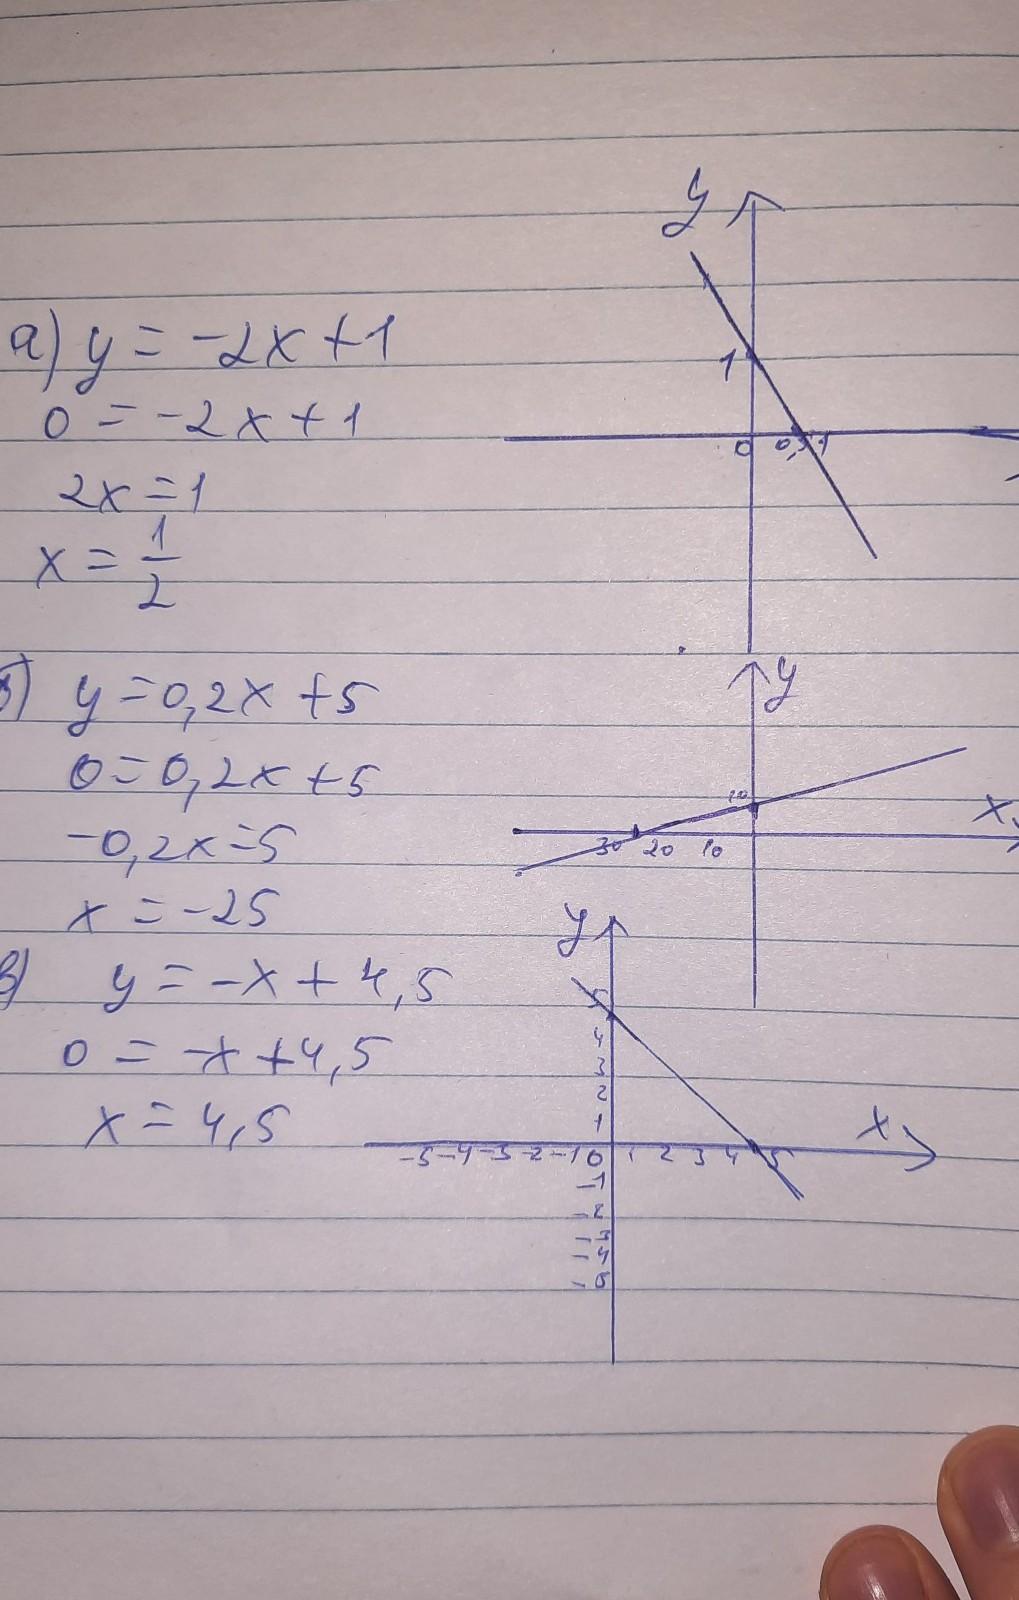 y
а) y = -2x + 1
0 = -2x + 1
1
0 0,5 1
2x = 1
x = 1/2
y
б) y = 0,2x + 5
0 = 0,2x + 5
10
x
30 20 10
-0,2x = 5
x = -25
y
в) y = -x + 4,5
0 = -x + 4,5
x = 4,5
5
4
3
2
1
x
-5 -4 -3 -2 -1 0 1 2 3 4 5
-1
-2
-3
-4
-5